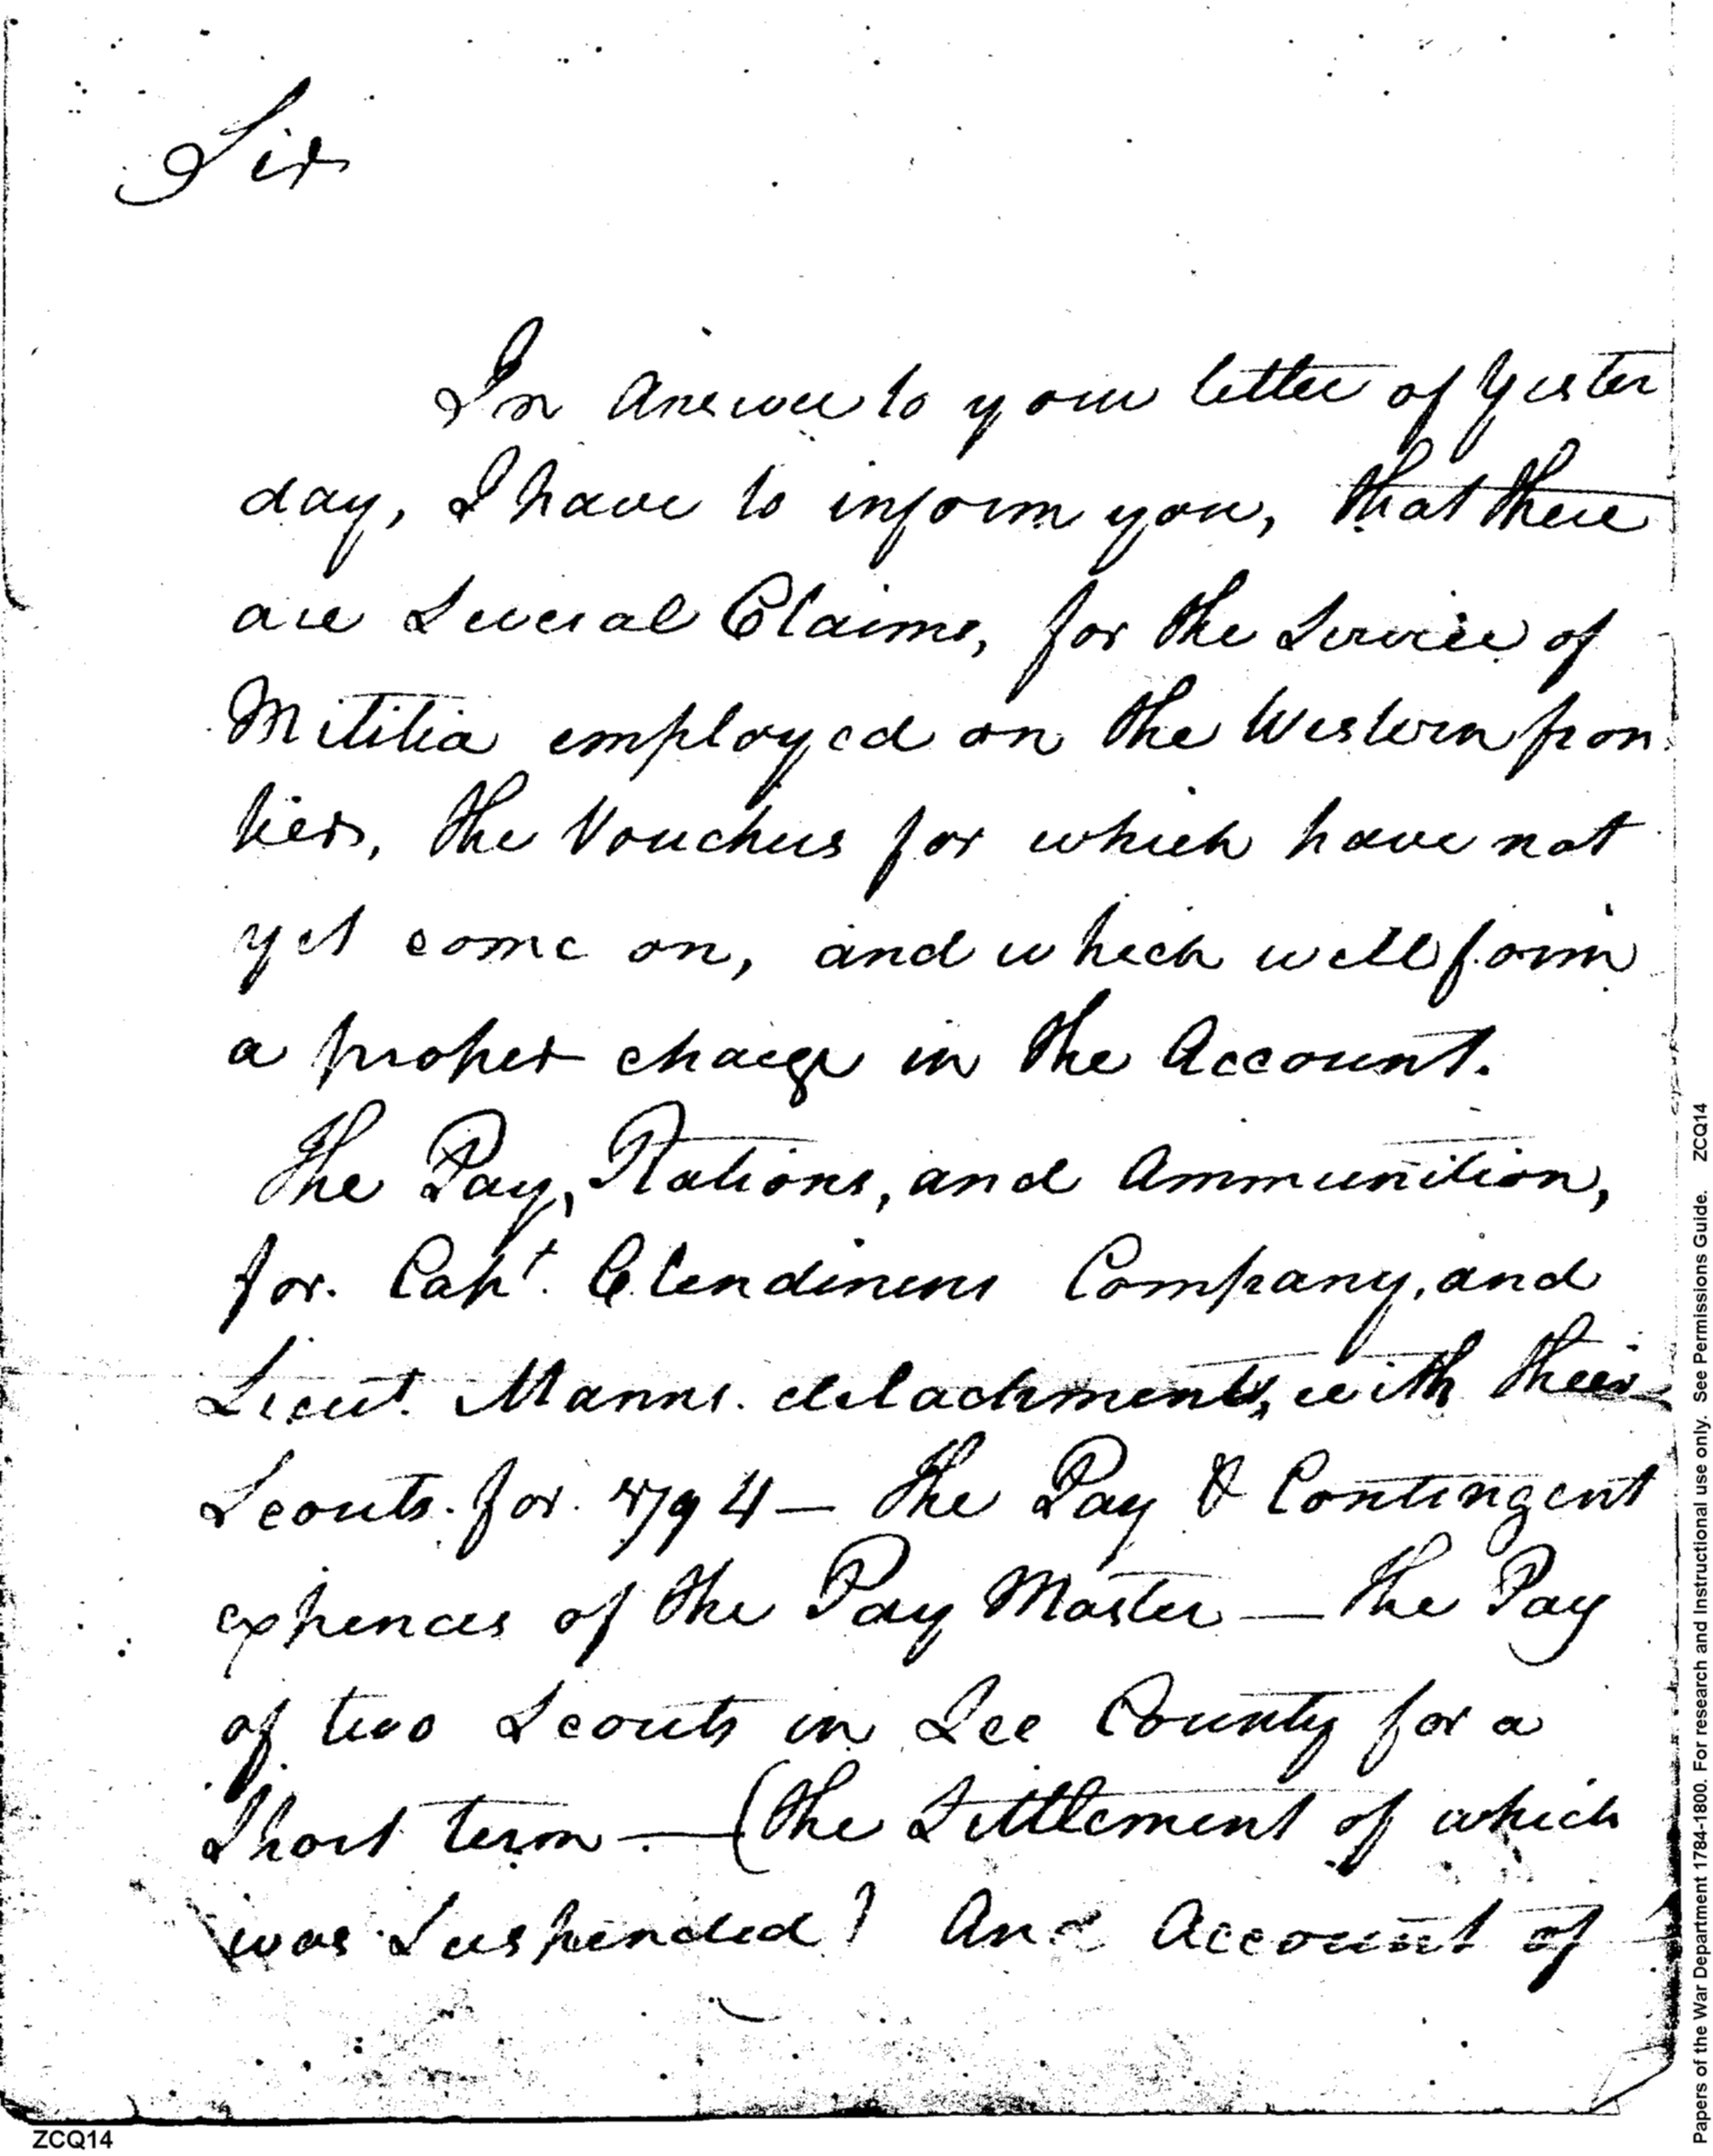 Sir
In Answer to your letter of Yester
day, I have to inform you, that there
are Several Claims, for the Service of
Militia employed on the Western fron
tiers, the Vouchers for which have not
yet come on, and which will form
a proper charge in the Account.
The Pay, Rations, and Ammunition,
for. Capt. Clendinens Company, and
Lieut. Manns. detachments, with their
Scouts. for. 1794 — the Pay & Contingent
expences of the Pay Master — the Pay
of two Scouts in Lee County for a
Short term — (the Settlement of which
was Suspended) And Account of
ZCQ14
Papers of the War Department 1784-1800. For research and Instructional use only. See Permissions Guide. ZCQ14